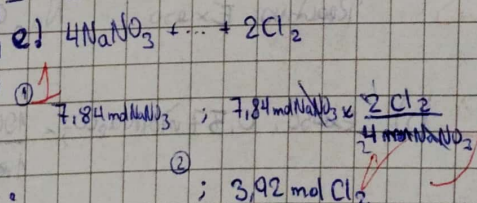 e) 4NaNO₃ + ... + 2Cl₂
① 1
7,84 mol NaNO₃ ; 7,84 mol NaNO₃ × 2 Cl₂ / 4 mol NaNO₃
2
② ; 3,92 mol Cl₂